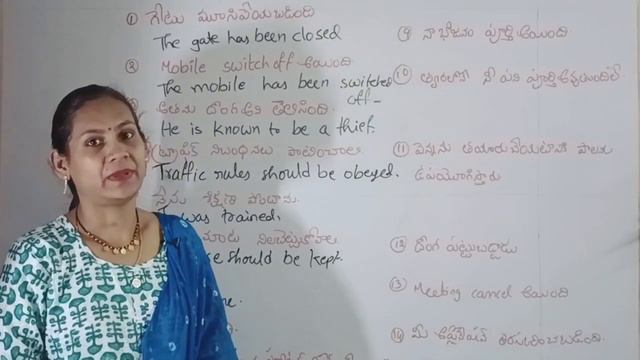 ① గేటు మూసివేయబడింది
The gate has been closed
② Mobile switch off అయింది
The mobile has been switched off -
అతను దొంగ అని తెలిసింది
He is known to be a thief.
ట్రాఫిక్ నిబంధనలు పాటించాలి
Traffic rules should be obeyed.
నేను శిక్షణ పొందాను
was trained.
should be kept.
⑨ నా భోజనం పూర్తి అయింది
⑩ త్వరలోనే నీ పని పూర్తి
⑪ వెన్నను తయారుచేయటానికి పాలను
ఉపయోగిస్తారు
⑫ దొంగ పట్టుబడ్డాడు
⑬ Meeting cancel అయింది
⑭ మీ అప్లికేషన్ తిరస్కరించబడింది.